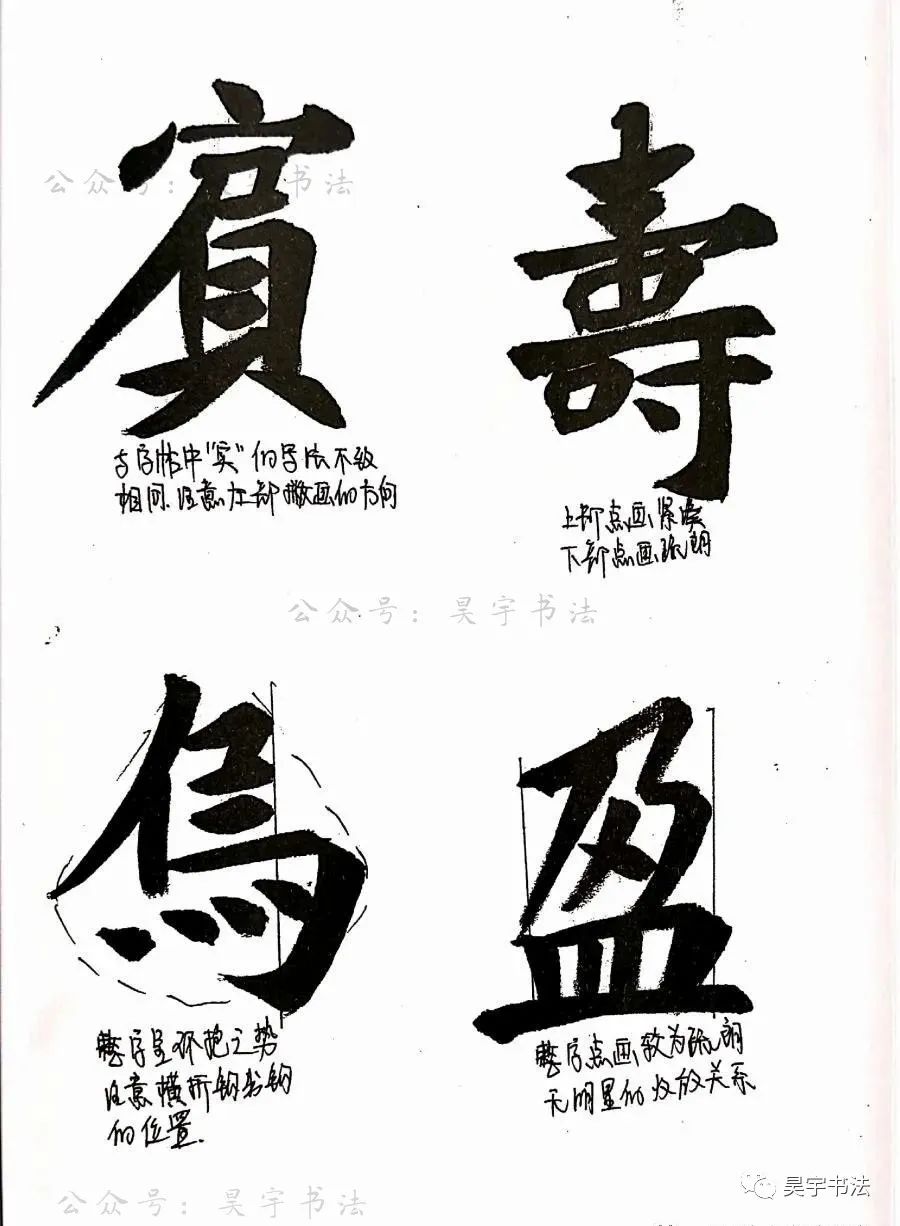 公众号：昊宇书法
賓 壽
与字帖中“实”的写法不致
相同.注意左部撇画的方向
上部点画紧凑
下部点画疏朗
公众号：昊宇书法
鳥 盈
整字呈环抱之势
注意横折钩出钩
的位置.
整字点画较为疏朗
无明显的收放关系
公众号：昊宇书法
昊宇书法